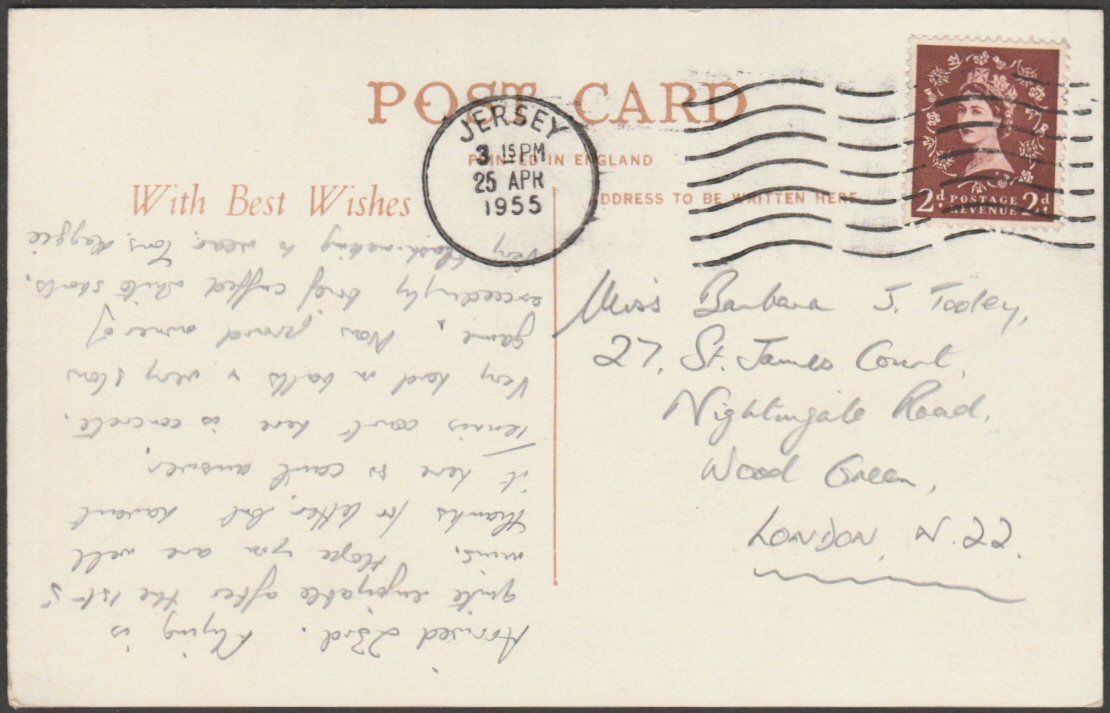 POST CARD
JERSEY
3 15 PM
25 APR
1955
PRINTED IN ENGLAND
With Best Wishes
ADDRESS TO BE WRITTEN HERE
2d POSTAGE 2d
REVENUE
Miss Barbara J. Tooley,
27, St. James Court,
Nightingale Road,
Wood Green,
LONDON, N.22.
Arrived 23rd. Flying is
quite enjoyable after the 1st 5
mins. Hope you are well
thanks for letter, but havent
it here so cant answer.
Tennis court here is concrete.
Very hard on balls & very slow
game. Now proud owner of
exceedingly brief cuffed white shorts.
Very to wear, Tons, Maggie